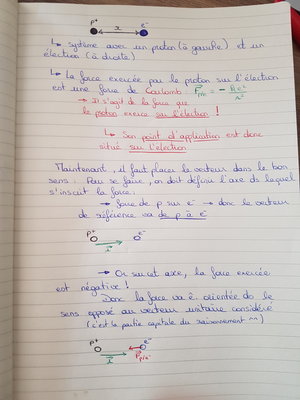 p⁺ e⁻
x
↳ système avec un proton (à gauche) et un
électron (à droite)
↳ La force exercée par le proton sur l'électron
est une force de Coulomb. F p/e = - k e² / r²
→ Il s'agit de la force que
le proton exerce sur l'électron !
↳ Son point d'application est donc
situé sur l'électron
Maintenant, il faut placer le vecteur dans le bon
sens. Pour se faire, on doit définir l'axe ds lequel
s'inscrit la force.
→ force de p sur e⁻ → donc le vecteur
de référence va de p à e⁻
p⁺ e⁻
→ Or sur cet axe, la force exercée
est négative !
Donc la force va ê. orientée ds le
sens opposé au vecteur unitaire considéré
(c'est la partie capitale du raisonnement ^^)
p⁺ e⁻
F p/e⁻